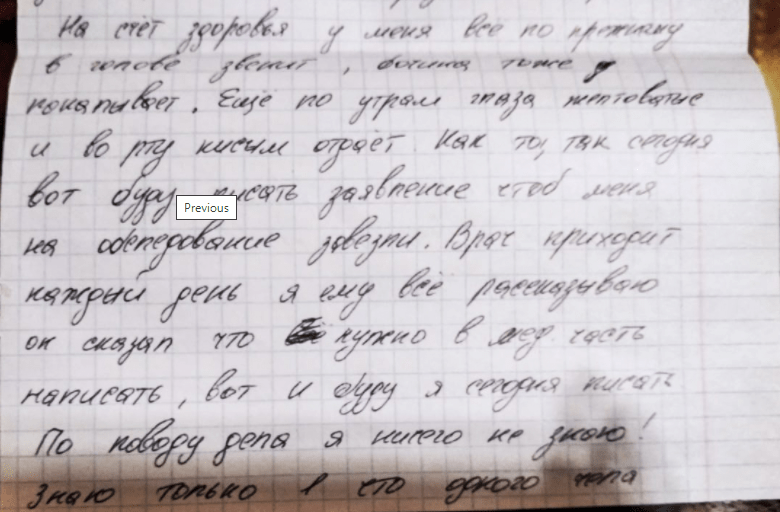 На счёт здоровья у меня всё по прежнему
в голове звенит, бочина тоже
покалывает. Ещё по утрам глаза желтоватые
и во рту кислым отдаёт. Как то, так сегодня
вот буду писать заявление чтоб меня
Previous
на обследование завезли. Врач приходит
каждый день я ему всё рассказываю
он сказал что нужно в мед. часть
написать, вот и буду я сегодня писать
По поводу дела я ничего не знаю!
Знаю только что одного